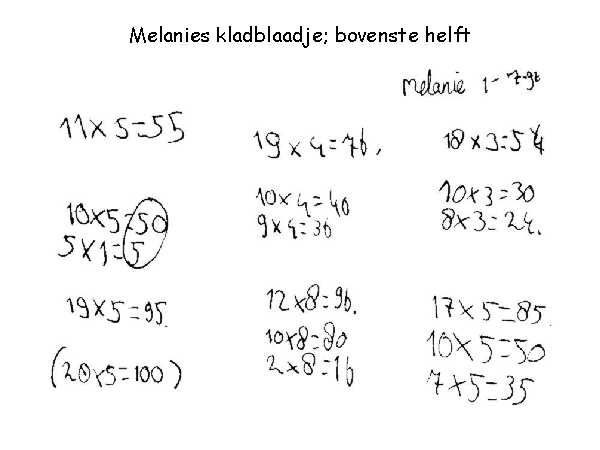 Melanies kladblaadje; bovenste helft
Melanie 1-7-92
11 x 5 = 55
10x5=50
5x1=5
19x5=95
(20x5=100)
19 x 4 = 76,
10x4=40
9x4=36
12x8=96.
10x8=80
2x8=16
18 x 3 = 54
10x3=30
8x3=24.
17x5=85
10x5=50
7x5=35